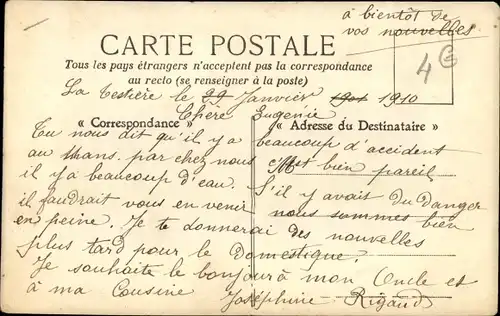 à bientôt de
vos nouvelles
CARTE POSTALE
Tous les pays étrangers n'acceptent pas la correspondance
au recto (se renseigner à la poste)
4
La Testière le 29 Janvier 1910
Chère Eugénie
« Correspondance »
« Adresse du Destinataire »
Tu nous dit qu'il y a beaucoup d'accident
au Mans. par chez nous c'est bien pareil
il y a beaucoup d'eau. S'il y avait du Danger
il faudrait vous en venir nous sommes bien
en peine. Je te donnerai des nouvelles
plus tard pour le Domestique.
Je souhaite le bonjour à mon Oncle et
à ma Cousine Joséphine Rigaud